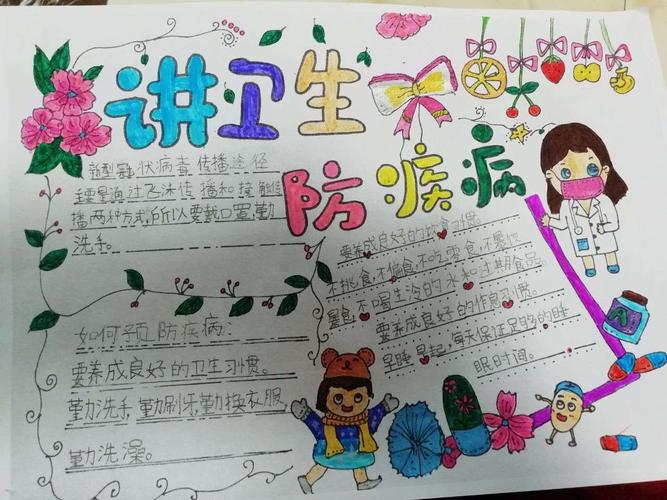 讲卫生
防疾病
新型冠状病毒传播途径
主要是通过飞沫传播和接触传
播两种方式,所以要戴口罩,勤
洗手。
如何预防疾病:
要养成良好的卫生习惯。
勤洗手,勤刷牙,勤换衣服,
勤洗澡。
要养成良好的饮食习惯。
不挑食,不偏食,不吃零食,不暴饮
暴食,不喝生冷的水和过期食品。
要养成良好的作息习惯。
早睡早起,每天保证足够的睡
眠时间。
A